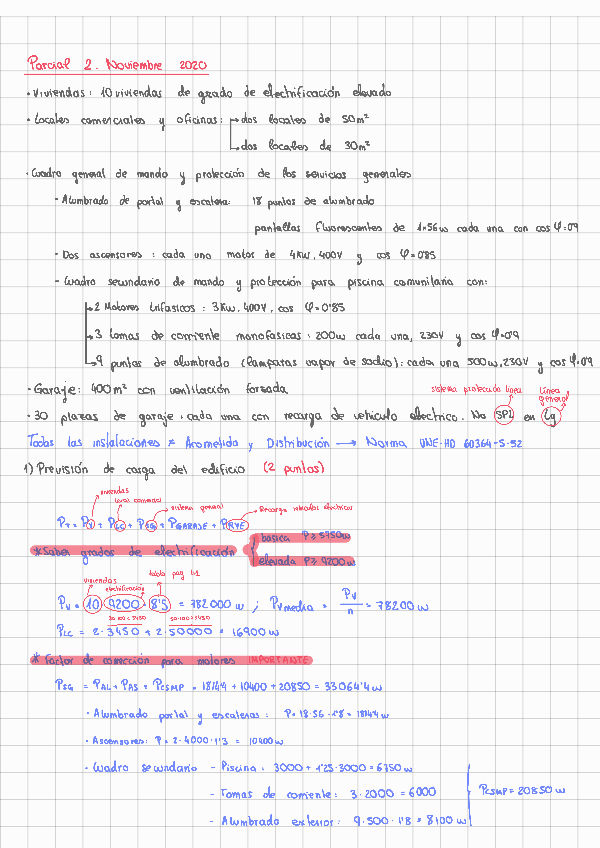 Parcial 2. Noviembre 2020
• Viviendas: 10 viviendas de grado de electrificación elevado
• Locales comerciales y oficinas: → dos locales de 50m²
→ dos locales de 30m²
• Cuadro general de mando y protección de los servicios generales
- Alumbrado de portal y escalera: 18 puntos de alumbrado
pantallas fluorescentes de 1×56w cada una con cos φ=0'9
- Dos ascensores: cada uno motor de 4KW, 400V y cos φ=0'85
- Cuadro secundario de mando y protección para piscina comunitaria con:
→ 2 Motores trifasicos: 3Kw, 400V, cos φ=0'85
→ 3 tomas de corriente monofasicas: 200w cada una, 230V y cos φ=0'9
→ 9 puntos de alumbrado (lamparas vapor de sodio): cada una 500w, 230V y cos φ=0.9
• Garaje: 400m² con ventilación forzada
sistema protección línea
Línea general
• 30 plazas de garaje: cada una con recarga de vehículo electrico. No SPL en Lg
Todas las instalaciones ≠ Acometida y Distribución → Norma UNE-HD 60364-5-52
1) Previsión de carga del edificio (2 puntos)
viviendas
local comercial
sistema general
Recarga vehículos electricos
PT = PV + PLC + PSG + PGARAJE + PRVE
* Saber grados de electrificación
basica P ≥ 5750w
elevada P ≥ 9200w
viviendas
electrificación
tabla pag 41
PV = 10 · 9200 · 8'5 = 782000 w ; PVmedia = PV/n = 78200 w
30·100 < 3450
50·100 > 3450
PLC = 2·3450 + 2·50000 = 16900w
* Factor de corrección para motores IMPORTANTE
PSG = PAL + PAS + PCSMP = 1814'4 + 10400 + 20850 = 33064'4 w
• Alumbrado portal y escaleras: P = 18·56·1'8 = 1814'4 w
• Ascensores: P = 2·4000·1'3 = 10400w
• Cuadro secundario - Piscina: 3000 + 1'25·3000 = 6750 w
- Tomas de corriente: 3·2000 = 6000
PCSMP = 20850 w
- Alumbrado exterior: 9·500·1'8 = 8100 w